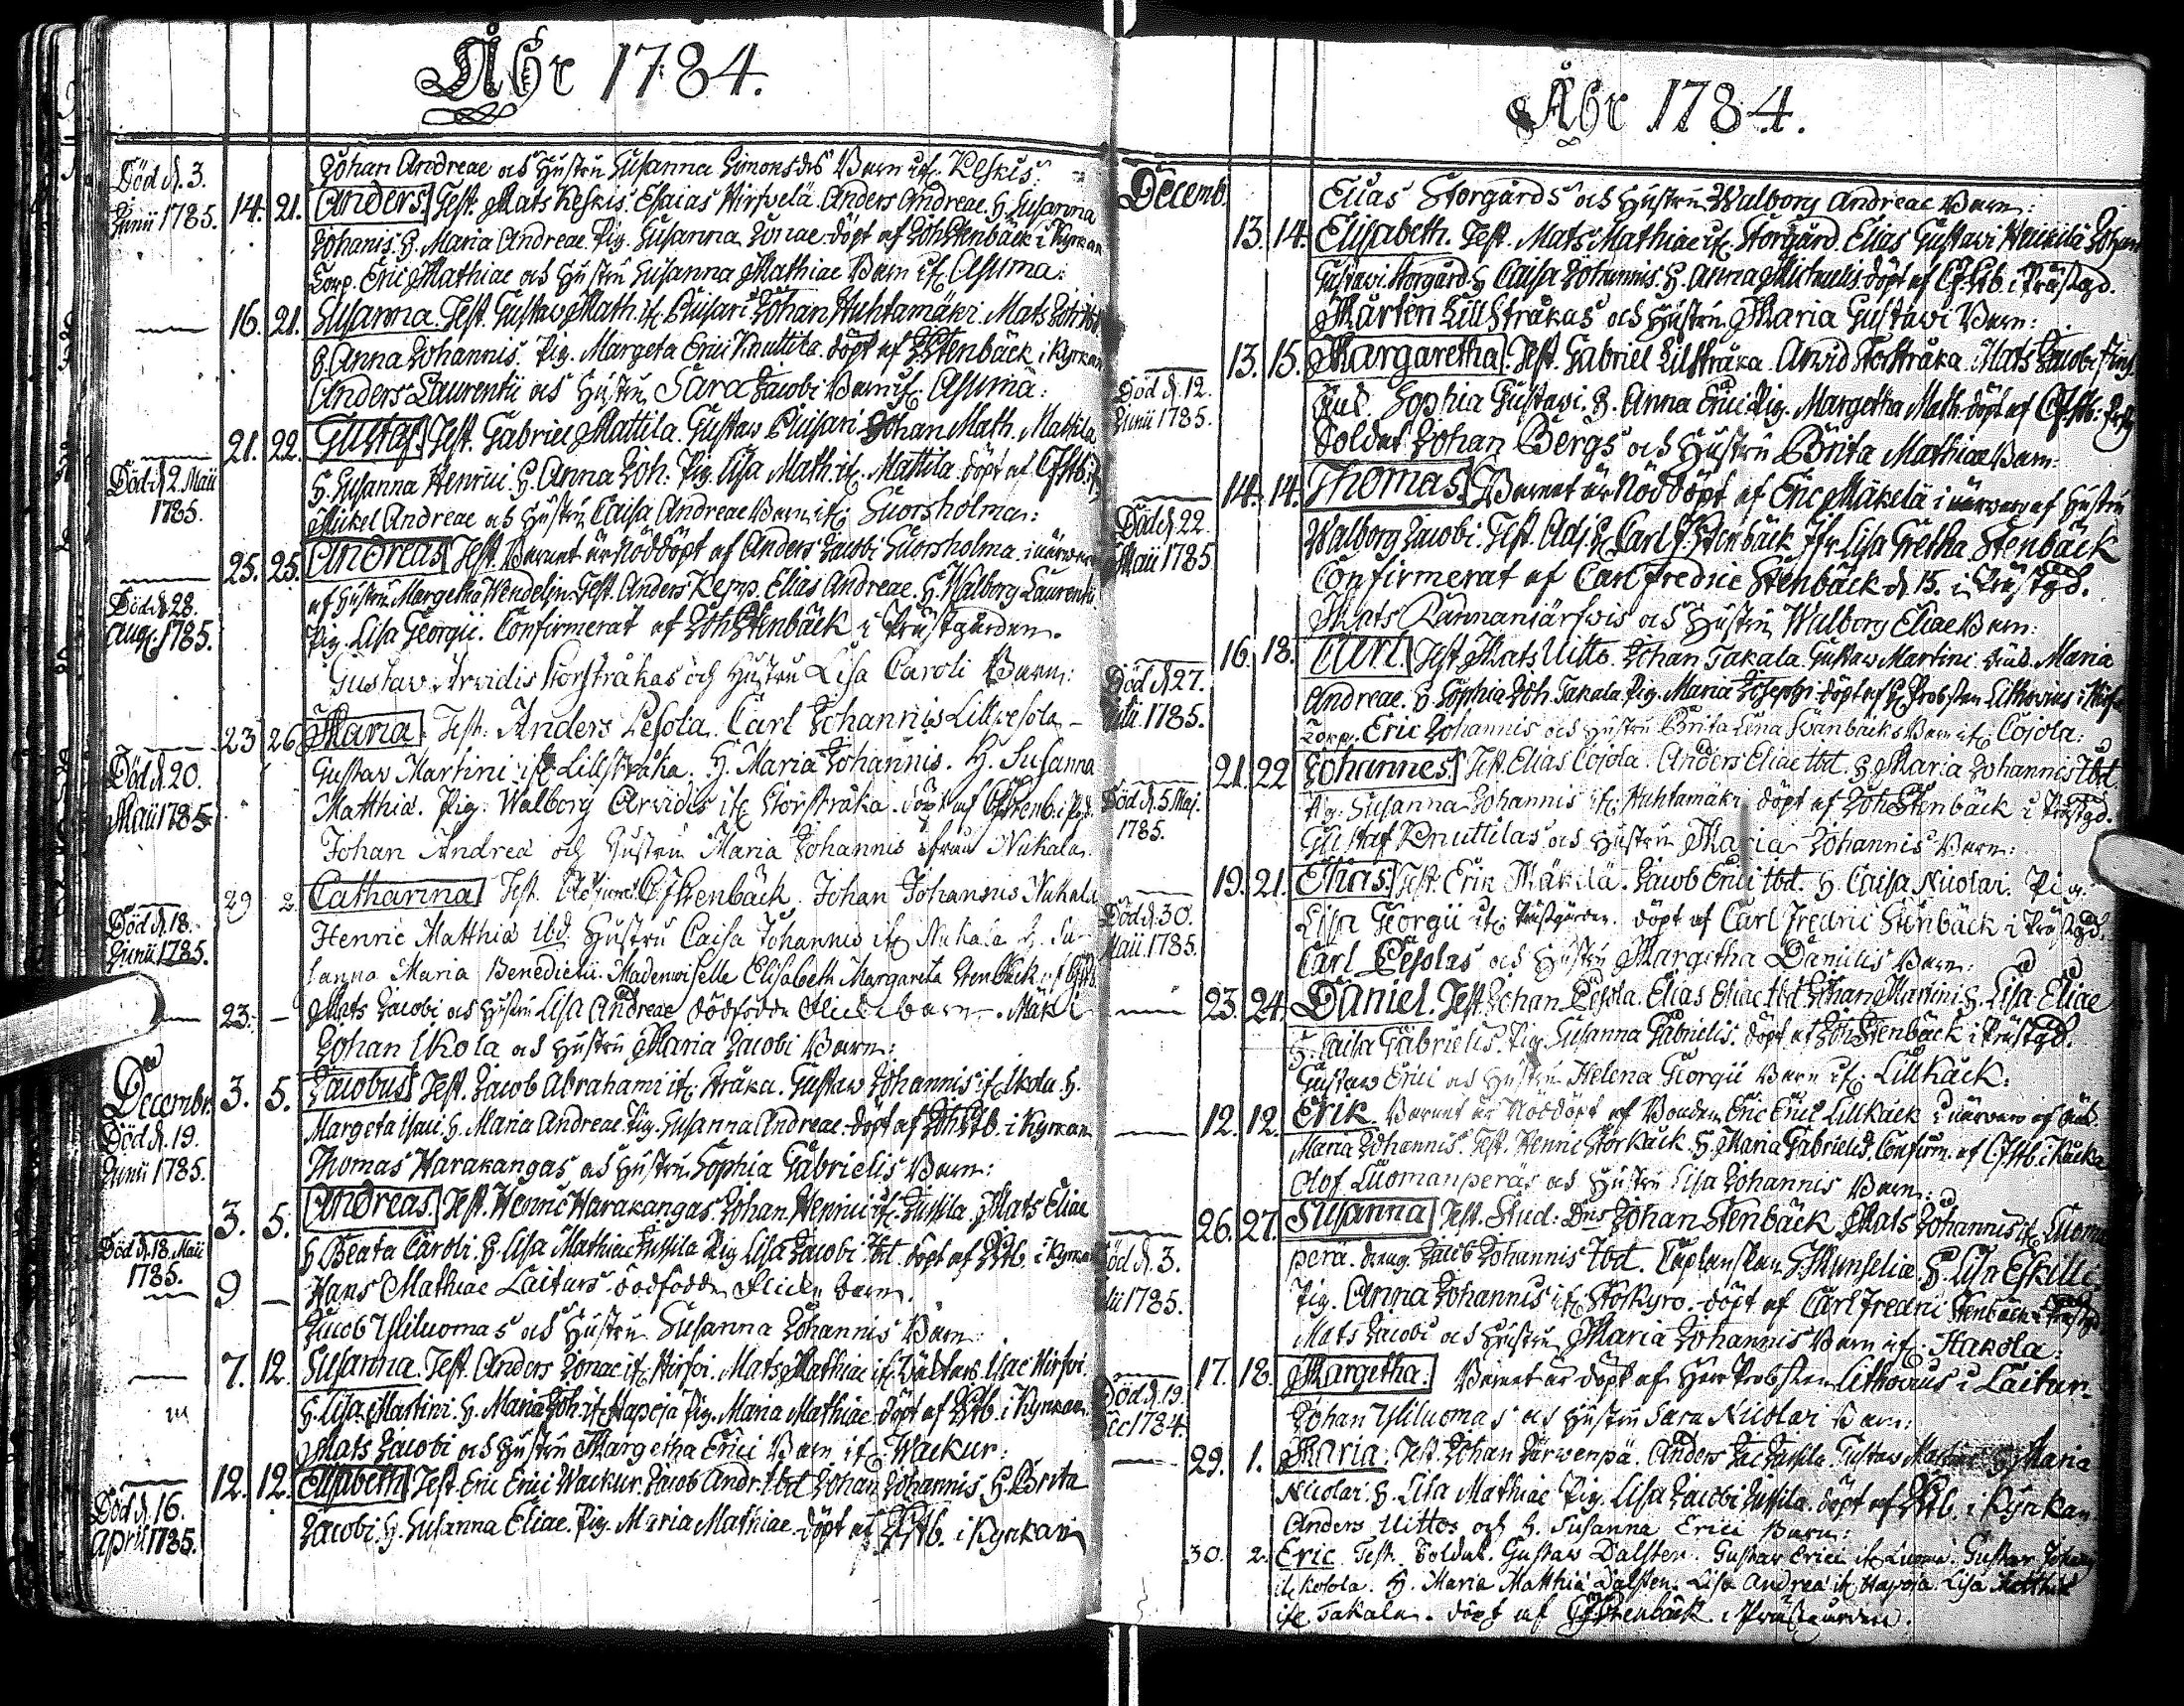 Åhr 1784.
Johan Andreae och Hustru Susanna Simonsdrs Barn if. Keskis:
Död d. 3. Junii 1785. 14. 21. Anders. Test. Mats Keskis. Esaias Hirfvelä. Anders Andreae. H. Susanna
Johanis H. Maria Andreae. Pig. Susanna Jonae. döpt af Joh Stenbäck i Kyrkan
Corp. Eric Mathiae och Hustru Susanna Mathiae Barn if. Asuma:
16. 21. Susanna. Test. Gustav Math. if. Johan Huhtamäki. Mats
H. Anna Johannis. Pig. Margeta Erici Knuttila. döpt af Stenbäck i Kyrkan
Anders Laurentii och Hustru Sara Jacobi Barn if. Asuma:
21. 22. Gustaf. Test. Gabriel Mattila. Gustav Johan Math. Mattila
H. Susanna Henrici. H. Anna Joh: Pig. Lisa Math. if. Mattila. döpt af CFStb:
Död d. 2. Maii 1785.
Mickel Andreae och Hustru Caisa Andreae Barn if. Suorsholma:
25. 25. Andreas Test. Barnet är Nöddöpt af Anders Jacobi Suorsholma. i närvaro
af Hustru Margetha Wendelin. Test. Anders Elias Andreae. H. Walborg Laurentii.
Död d. 28. Aug. 1785.
Pig. Lisa Georgii. Confirmerat af Joh Stenbäck i Prästgården.
Gustav Arvidis Storstråkas och Hustru Lisa Caroli Barn:
23 26 Maria. Test. Anders Pesola. Carl Johannis Lillpesola
Gustav Martini if. Lillstråka. H. Maria Johannis. H. Susanna
Död d. 20. Maii 1785
Matthiæ. Pig. Walborg Arvidis if. Storstråka. döpt af CFStenb. i Pgd.
Johan Andreæ och Hustru Maria Johannis ifrån Nikala.
29 2. Catharina Test. Adjunct CFStenbäck. Johan Johannis Nikala
Henric Matthiæ Ibd. Hustru Caisa Johannis if. Nikala H. Su-
Död d. 18. Junii 1785.
sanna Maria Benedictii. Mademoiselle Elisabeth Margareta Stenbäck. af CFStb.
23. — Mats Jacobi och Hustru Lisa Andreae dödfödde Flickebarn. Mäki
Johan Ikola och Hustru Maria Jacobi Barn:
Decembr. 3. 5. Jacobus Test. Jacob Abrahami if. Stråka. Gustav Johannis if. Ikola. H.
Margeta Isaci. H. Maria Andreae. Pig. Susanna Andreae. döpt af Joh Stb. i Kyrkan
Död d. 19. Junii 1785.
Thomas Harakangas och Hustru Sophia Gabrielis Barn:
3. 5. Andreas. Test. Henric Harakangas. Johan Henrici if. Jussila. Mats Eliae
H. Beata Caroli. H. Lisa Mathiae Jussila Pig. Lisa Jacobi Ibd. döpt af JStb. i Kyrkan
Död d. 18. Maii 1785.
9 — Hans Mathiae Laiturs dödfödde Flicke barn.
Jacob Yliluomas och Hustru Susanna Johannis Barn:
7. 12. Susanna. Test. Anders Jonae if. Hirfvi. Mats Mathiae if. Isac Hirfvi.
H. Lisa Martini. H. Maria Joh. if. Hapoja Pig. Maria Mathiae döpt af JStb. i Kyrkan.
Mats Jacobi och Hustru Margetha Erici Barn if. Wackur:
12. 12. Elisabeth Test. Eric Erici Wackur. Jacob Andr. Ibd Johan Johannis H. Brita
Död d. 16. April 1785.
Jacobi. H. Susanna Eliae. Pig. Maria Mathiae. döpt af JStb. i Kyrkan
Åhr 1784.
Decemb. Elias Storgårds och Hustru Walborg Andreae Barn:
13. 14. Elisabeth. Test. Mats Mathiae if. Storgård. Elias Gustavi Heikilä Johan
Gustavi Storgård H. Caisa Johannis. H. Anna Michaelis. döpt af CFStb. i Prästgd.
Mårten Lillstråkas och Hustru Maria Gustavi Barn:
13. 15. Margaretha. Test. Gabriel Lilstråka. Arvid Storstråka. Mats Jacobi
Död d. 12. Junii 1785.
Sophia Gustavi. H. Anna Erici Pig. Margetha Math. döpt af CFStb:
Soldat Johan Bergs och Hustru Brita Mathiae Barn:
14. 14. Thomas. Barnet är Nöddöpt af Eric Mäkelä i närvaro af Hustru
Död d. 22. Maii 1785
Walborg Jacobi. Test. Adj. H. Carl F. Stenbäck Jfr Lisa Gretha Stenbäck
Confirmerat af Carl Fredric Stenbäck d. 15. i Prästgd.
Mats och Hustru Walborg Eliae Barn:
16. 18. Carl. Test. Mats Uitto. Johan Takala. Gustav Martini. Maria
Död d. 27. 1785.
Andreae. H. Sophia Joh. Takala. Pig. Maria Josephi. döpt af H. Probsten Lithovius i
Corp. Eric Johannis och Hustru Brita Lena Svanbäcks Barn if. Cojola:
21. 22 Johannes. Test. Elias Cojola. Anders Eliae Ibd. H. Maria Johannis Ibd.
Död d. 5 Maj. 1785.
Pig. Susanna Johannis if. Huhtamäki döpt af Joh Stenbäck i Prästgd.
Gustaf Knuttilas och Hustru Maria Johannis Barn:
19. 21. Elias. Test. Erik Mäkelä. Jacob Erici Ibd. H. Caisa Nicolai. Pig.
Död d. 30. Maii. 1785.
Lisa Georgii if. Prästgården. döpt af Carl Fredric Stenbäck i Prästgd.
Carl Pesolas och Hustru Margetha Danielis Barn:
23. 24. Daniel. Test. Johan Pesola. Elias Eliae Ibd. Johan Martini. H. Lisa Eliae
H. Caisa Gabrielis. Pig. Susanna Gabrielis. döpt af Joh Stenbäck i Prästgd.
Gustaw Erici och Hustru Helena Georgii Barn if. Lillkåck:
12. 12. Erik. Barnet är Nöddöpt af Bonden Eric Erici Lillkåck i närvaro af
Maria Johannis. Test. Henric Storkåck. H. Maria Gabrielis. Confirm. af CFStb. i Kåcke
Olof Luomanperäs och Hustru Lisa Johannis Barn:
26. 27. Susanna Test. Stud: Dns Johan Stenbäck Mats Johannis if. Luoman
Död d. 3. 1785.
perä. dräng. Jacob Johannis Ibd. Caplanskan H. Lisa Eskilli
Pig. Anna Johannis if. Storkyro. döpt af Carl Fredric Stenbäck i Prästgd
Mats Jacobi och Hustru Maria Johannis Barn if. Hakola:
17. 18. Margetha. Barnet är döpt af Herr Probsten Lithovius i Laituri.
Död d. 19. Dec 1784.
Johan Yliluomas och Hustru Sara Nicolai Barn:
29. 1. Maria. Test. Johan Järwenpä. Anders Jac Jussila. Gustav H. Maria
Nicolai. H. Lisa Mathiae Pig. Lisa Jacobi Jussila. döpt af JStb. i Kyrkan
Anders Uittos och H. Susanna Erici Barn:
30. 2. Eric. Test. Soldat. Gustav Dalsten. Gustav Erici if. Luoma. Gustav
if. H. Maria Matthiæ Dalsten. Lisa Andreæ if. Hapoja Lisa Matthiæ
if. Takala. döpt af CFStenbäck i Prästgården.